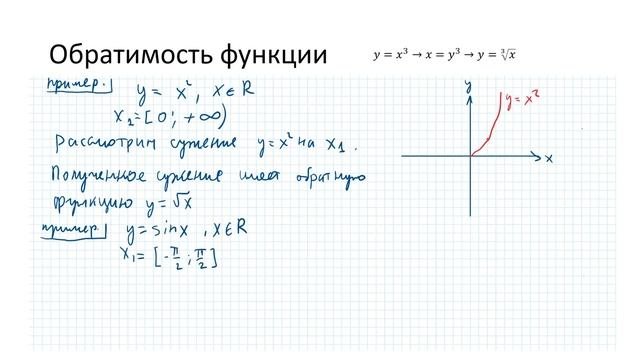 Обратимость функции
y = x³ → x = y³ → y = ∛x
пример.
y = x², x∈R
x₂=[0; +∞)
Рассмотрим сужение y=x² на x₁.
Полученное сужение имеет обратную
функцию y=√x
пример.
y=sinx, x∈R
x₁=[-π/2; π/2]
y
y=x²
x